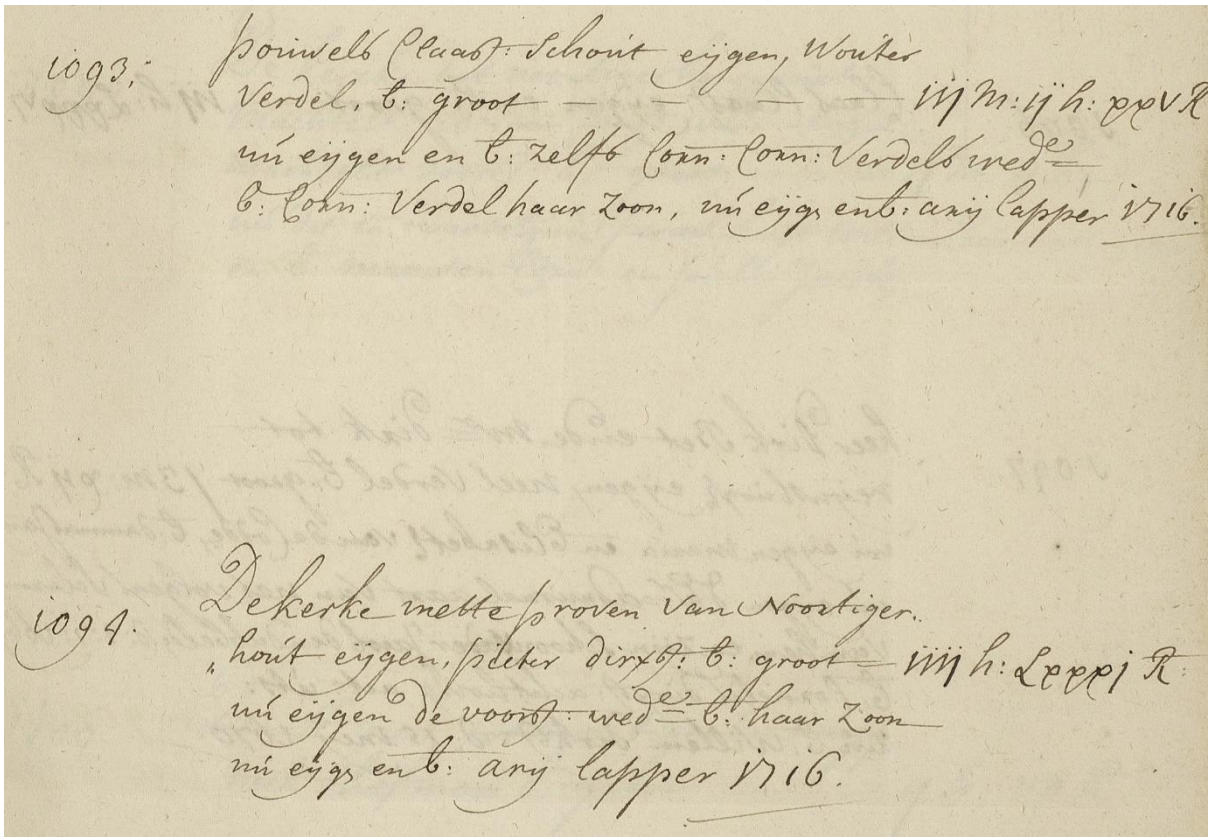 1093. pouwels Claasz: Schout eijgen, Wouter
Verdel, b: groot — iijj m: ij h: xxv R
nú eijgen en b: zelfs Corn: Corn: Verdels wede
b: Corn: Verdel haar zoon, nú eijg, en b: arij lapper 1716.
1094. De kerke mette proven van Noortiger„
„hoút eijgen, pieter dirxsz: b: groot — iiijj h: Lxxxj R
nú eijgen de voorsz: wede b: haar zoon
nú eijg, en b: arij lapper 1716.